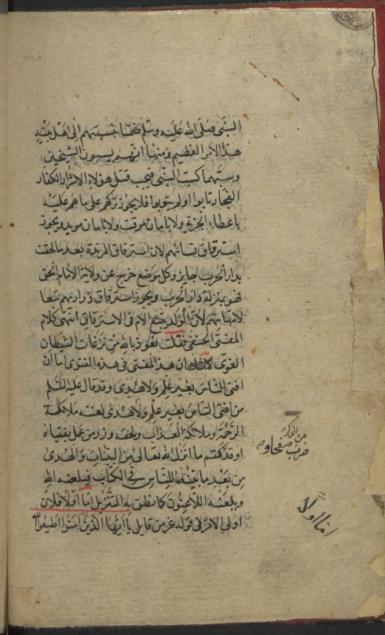 النبي صلى الله عليه وسلم ضحا حسبتهم الى اهل بيته
هذا الامر العظيم ومنها انهم يسبون الشيخين
وسبهما كسب النبي فيجب قتل هؤلاء الاشرار الكفار
الفجار تابوا او لم يتوبوا فلا يجوز تركهم على ما هم عليه
باعطاء الجزية ولا بامان موقت ولا بامان موبد ويجوز
استرقاق نسائهم لان استرقاق المرتدة بعد ما لحقت
بدار الحرب جايز وكل موضع خرج عن ولاية الامام الحق
فهو بمنزلة دار الحرب ويجوز استرقاق ذراريهم تبعا
لامهاتهم لان الولد يتبع الام في الاسترقاق انتهى كلام
المفتي الحنفي فقلت نعوذ بالله من نزغات الشيطان
الغوي هذا المفتي في هذه الفتوى اما ان
افتى الناس بغير علم ولا هدى وقد قال عليه السلم
من افتى الناس بغير علم ولا هدى لعنه ملائكة
الرحمة وملائكة العذاب ولحقه وزر من عمل بفتياه
او قد كتم ما انزل الله تعالى من البينات والهدى
من بعد ما بينه للناس في الكتاب فيلعنه الله
ويلعنه اللاعنون كما نطق به التنزيل اما اولا فلان
اولي الامر في قوله عز من قايل يا ايها الذين امنوا اطيعوا الله
اما اولا